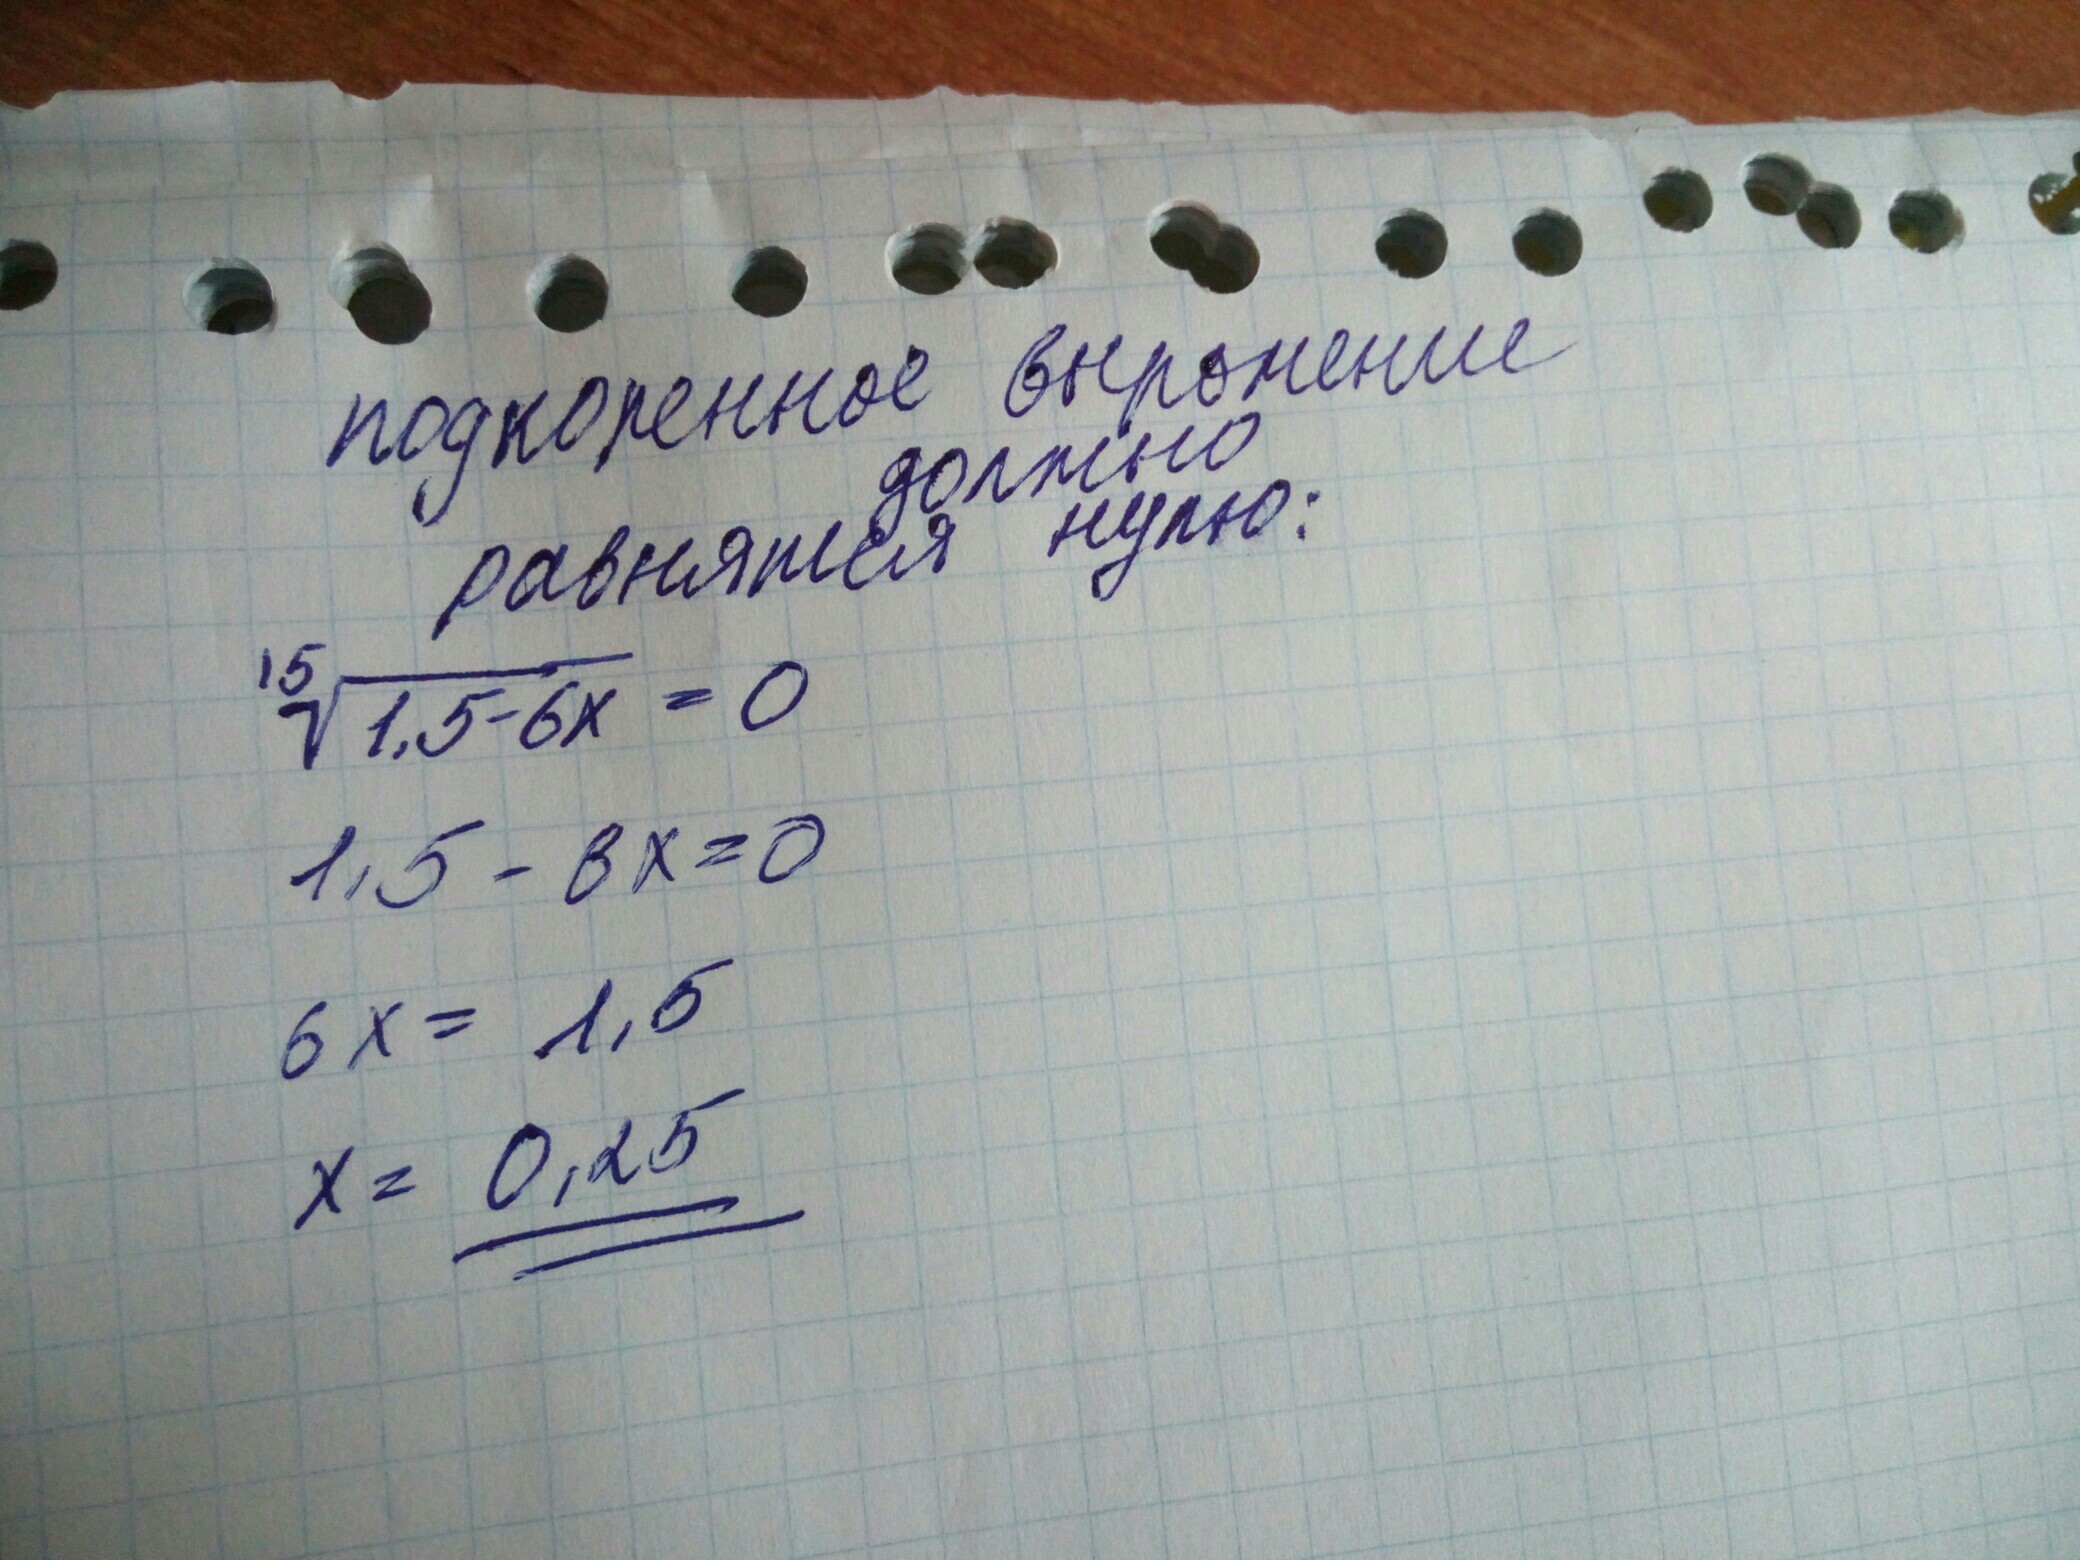 подкоренное выражение
должно
равнятся нулю:
¹⁵√1,5-6x = 0
1,5 - 6x = 0
6x = 1,5
x = 0,25